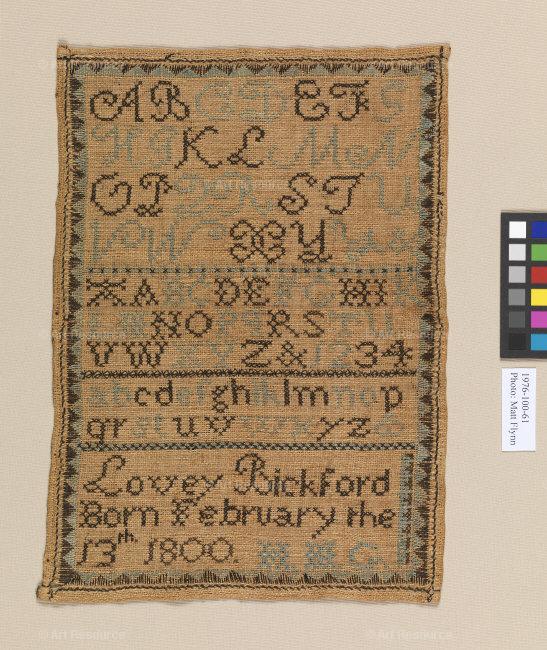 A B C D E F G
H I K L M N
O P Q R S T U
V W X Y Z &
A B C D E F G H I K
L M N O P Q R S T U
V W X Y Z & 1 2 3 4
a b c d e f g h i k l m n o p
q r s t u v w x y z
Lovey Bickford
Born February the
13th 1800.
1976-100-61
Photo: Matt Flynn
© Art Resource
© Art Resource